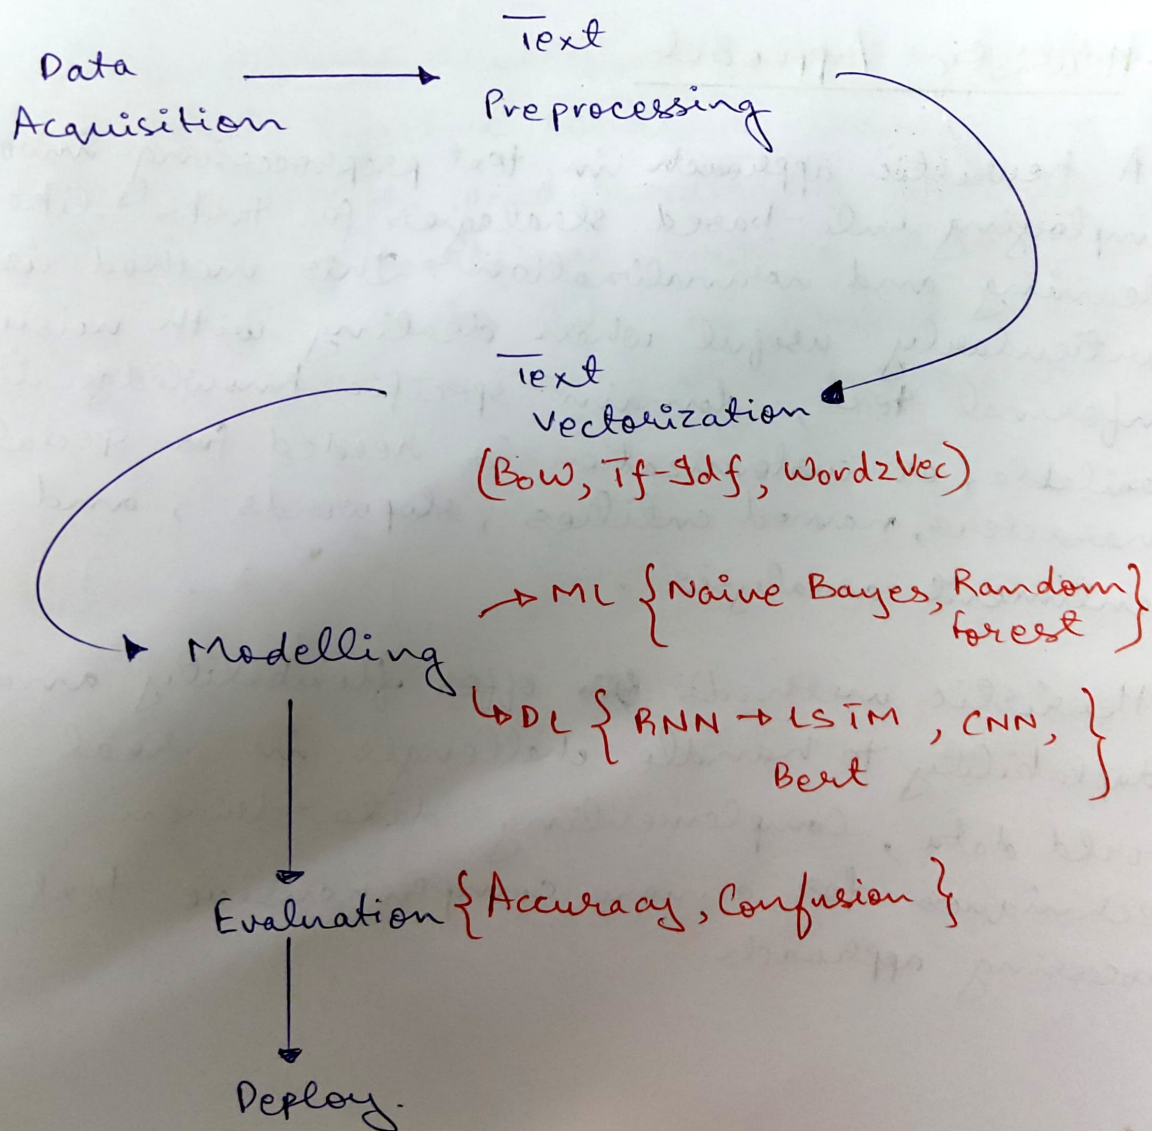 Data
Acquisition
Text
Preprocessing
Text
Vectorization
(BoW, Tf-Idf, Word2Vec)
Modelling
ML {Naive Bayes, Random
forest}
DL { RNN → LSTM , CNN,
Bert }
Evaluation {Accuracy, Confusion }
Deploy.